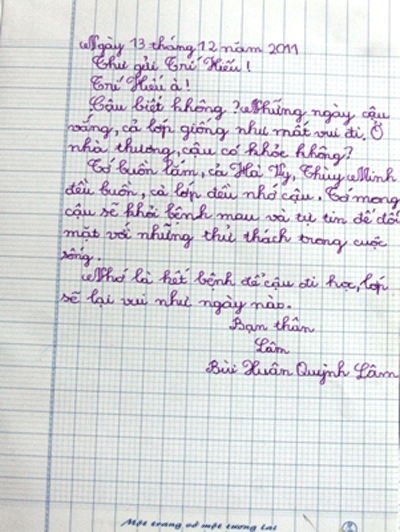 Ngày 13 tháng 12 năm 2011
Thư gửi Trí Hiếu!
Trí Hiếu à!
Cậu biết không? Những ngày cậu
vắng, cả lớp giống như mất vui đi. Ở
nhà thương, cậu có khỏe không?
Tớ buồn lắm, cả Hà Vy, Thùy Minh
đều buồn, cả lớp đều nhớ cậu. Tớ mong
cậu sẽ khỏi bệnh mau và tự tin để đối
mặt với những thử thách trong cuộc
sống.
Nhớ là hết bệnh để cậu đi học, lớp
sẽ lại vui như ngày nào.
Bạn thân
Lâm
Bùi Xuân Quỳnh Lâm
Một trang vở một tương lai